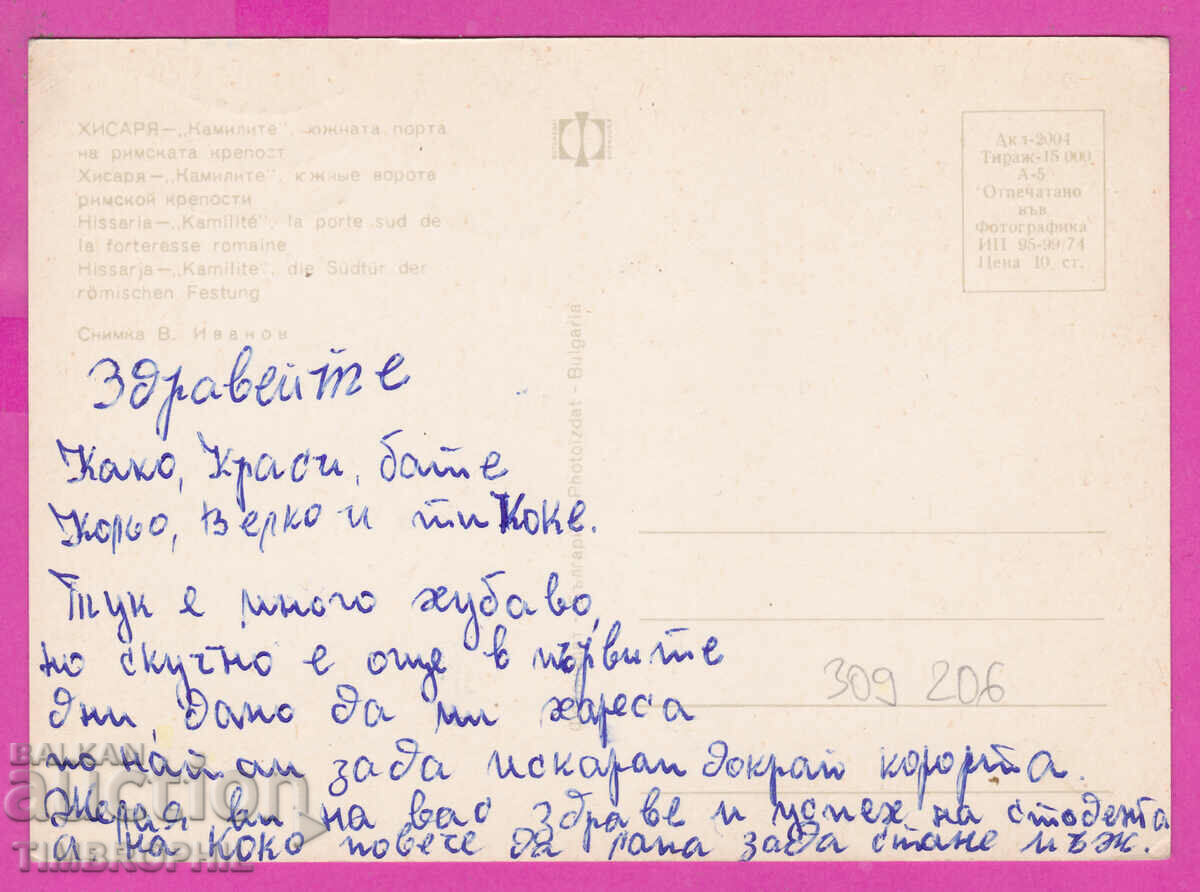 ХИСАРЯ—„Камилите", южната порта
на римската крепост
Хисаря—„Камилите", южные ворота
римской крепости
Hissaria—„Kamilité", la porte sud de
la forteresse romaine
Hissarja—„Kamilite", die Südtür der
römischen Festung
Снимка В. Иванов
Дкл-2004
Тираж-15 000
А-5
Отпечатано
във
Фотографика
ИП 95-99/74
Цена 10 ст.
Photoizdat - Bulgaria
Здравейте
Како, Краси, бате
Кольо, Верко и ти Коке.
Тук е много хубаво,
но скучно е още в първите
дни, дано да ми хареса
за да искарам докрай курорта.
Желая ви на вас здраве и успех на студента
а на Коко повече да папа зада стане мъж.
309 206
BALKAN
auction
TIMBROPHIL